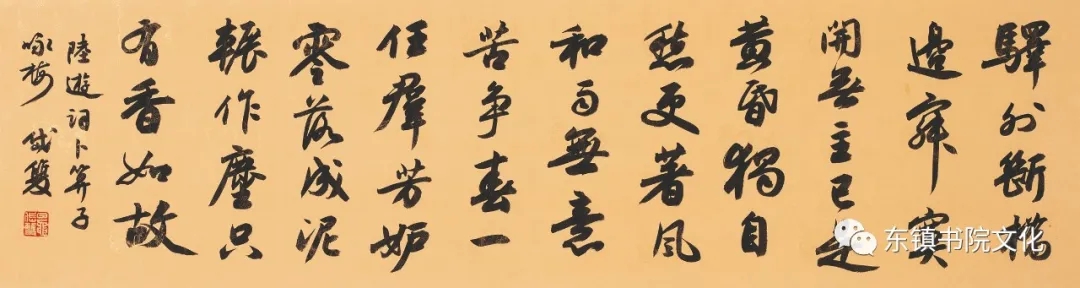 驛外斷橋
邊寂寞
開無主已是
黃昏獨自
愁更著風
和雨無意
苦争春一
任羣芳妒
零落成泥
輾作塵只
有香如故
陸遊詞卜算子
咏梅
东镇书院文化